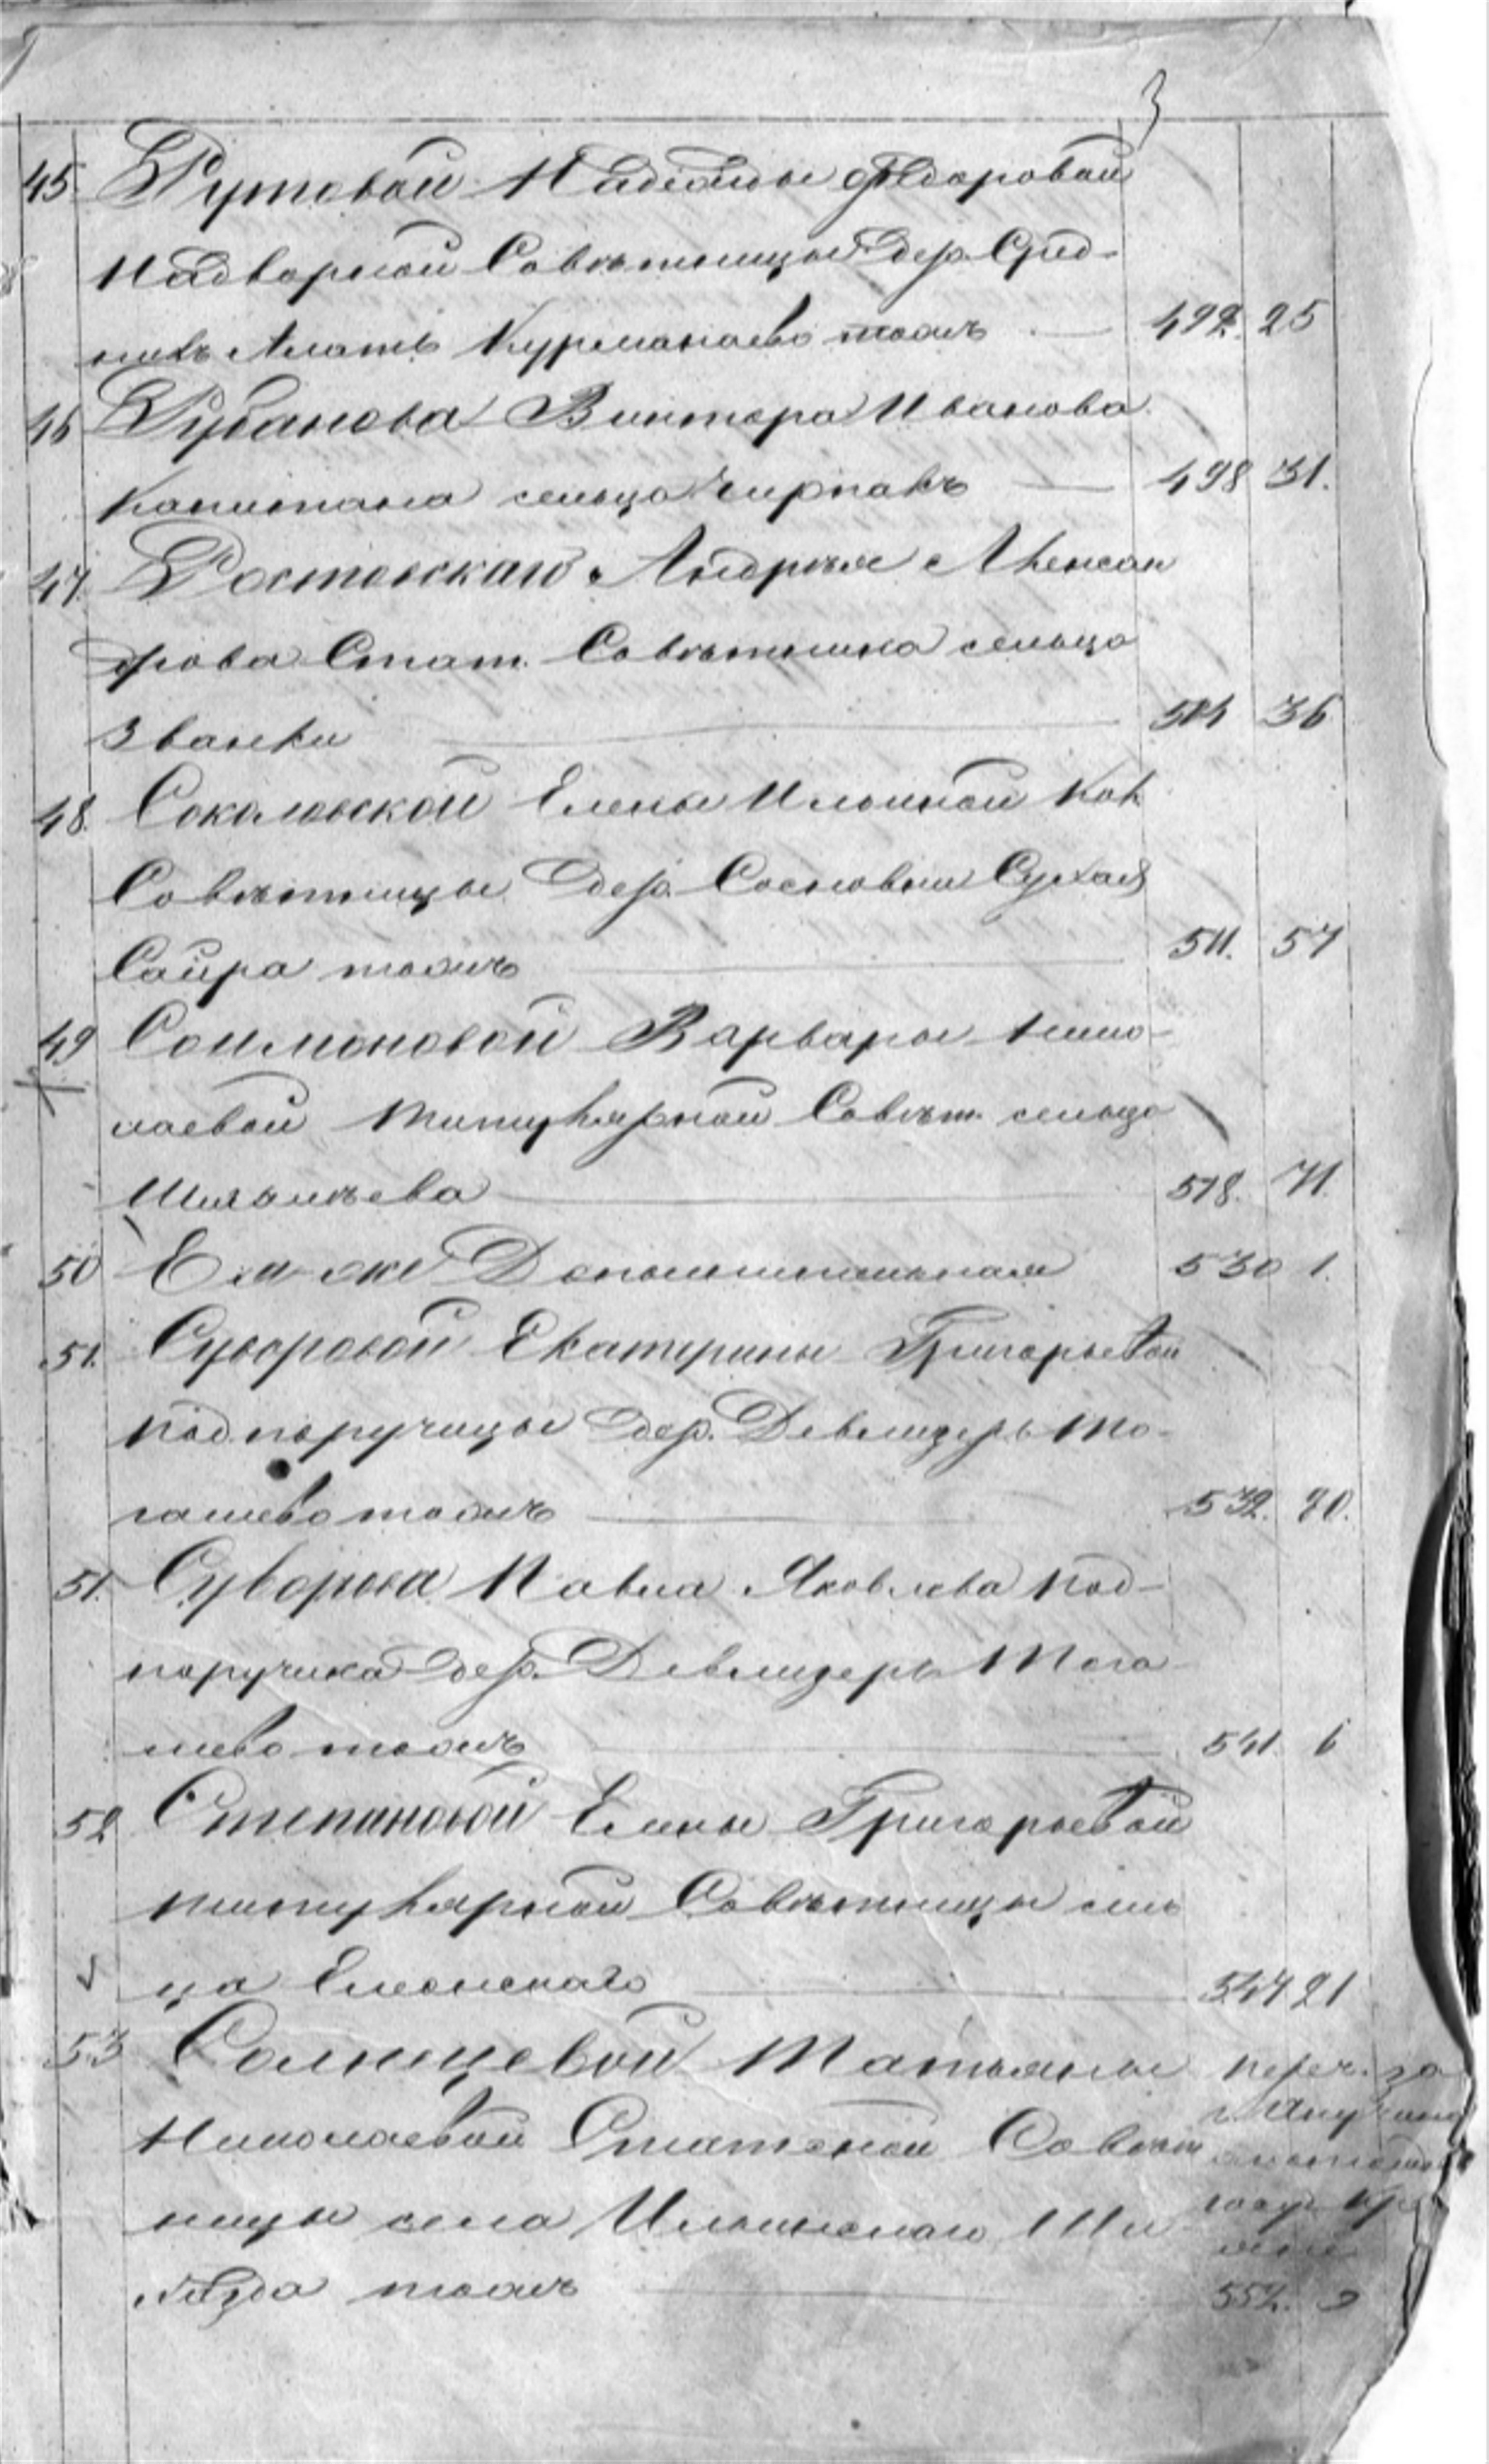 3
45. Рутовой Надежды Федоровой
Надворной Совѣтницы дер. Сред-
нихъ Алатъ Курманаево тожъ — 492. 25
46 Рубанова Виктора Иванова
Капитана сельца Чирпакъ — 498 31.
47. Ростовскаго Андрея Алексан
дрова Стат. Совѣтника сельца
Званки — 504 36
48. Соколовской Елены Ильиной Кол
Совѣтницы дер. Сосновки Сухая
Саира тожъ — 511. 57
49 Соймоновой Варвары Нико-
лаевой Титулярной Совѣт. сельца
518. 71.
50 Ея же Дополнительная 530 1.
51. Суворовой Екатерины Григорьевой
подпоручицы дер. Девлизерь То-
гашево тожъ — 532. 70.
51. Суворова Павла Яковлева Под-
поручика дер. Девлизерь Тога-
шево тожъ — 541. 6
52 Степановой Елены Григорьевой
титулярной Совѣтницы сель
ца Елеонскаго — 547 21
53 Солнцевой Татьяны переч. за
Николаевой Статской Совѣт
ницы села Ильинскаго Ши
тожъ — 552.